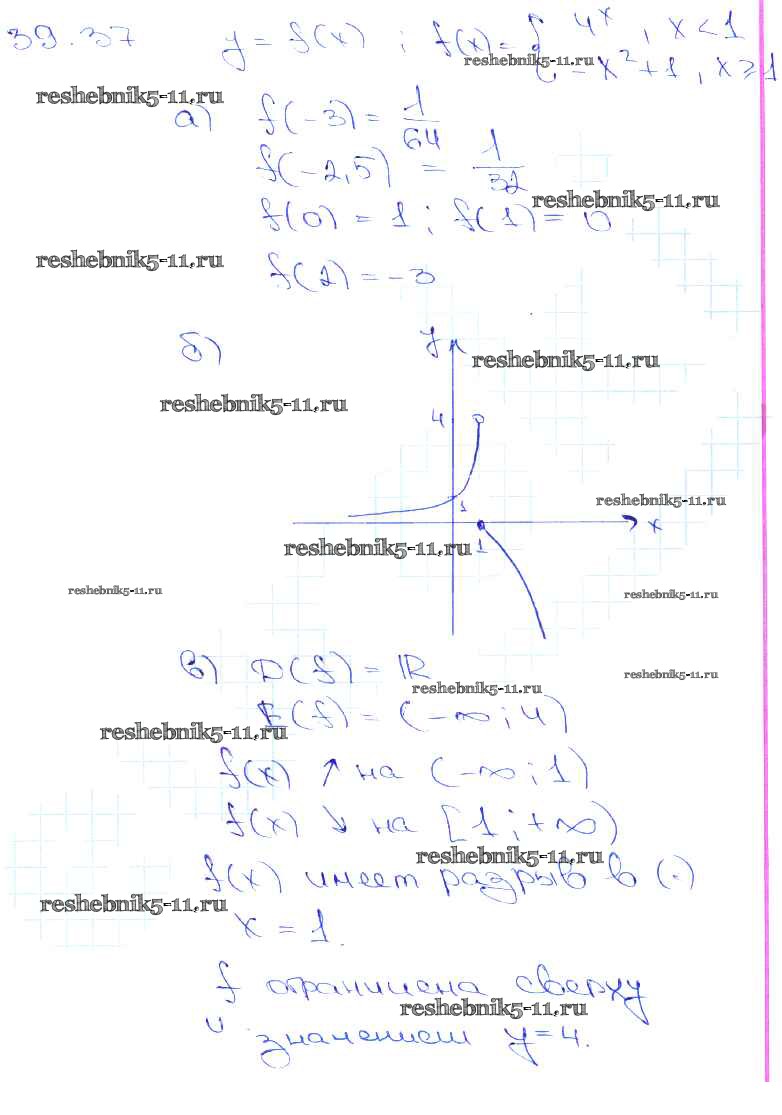 39.37 y = f(x) ; f(x) = { 4^x , x < 1
reshebnik5-11.ru
- x² + 1 , x ≥ 1
reshebnik5-11.ru
а) f(-3) = 1/64
f(-2,5) = 1/32
reshebnik5-11.ru
f(0) = 1 ; f(1) = 0
reshebnik5-11.ru
f(2) = -3
б)
y
reshebnik5-11.ru
reshebnik5-11.ru
4
reshebnik5-11.ru
1
x
reshebnik5-11.ru
1
reshebnik5-11.ru
reshebnik5-11.ru
в) D(f) = ℝ
reshebnik5-11.ru
reshebnik5-11.ru
E(f) = (-∞ ; 4)
reshebnik5-11.ru
f(x) ↑ на (-∞ ; 1)
f(x) ↓ на [1 ; +∞)
reshebnik5-11.ru
f(x) имеет разрыв в (.)
reshebnik5-11.ru
x = 1.
f ограничена сверху
reshebnik5-11.ru
значением y = 4.